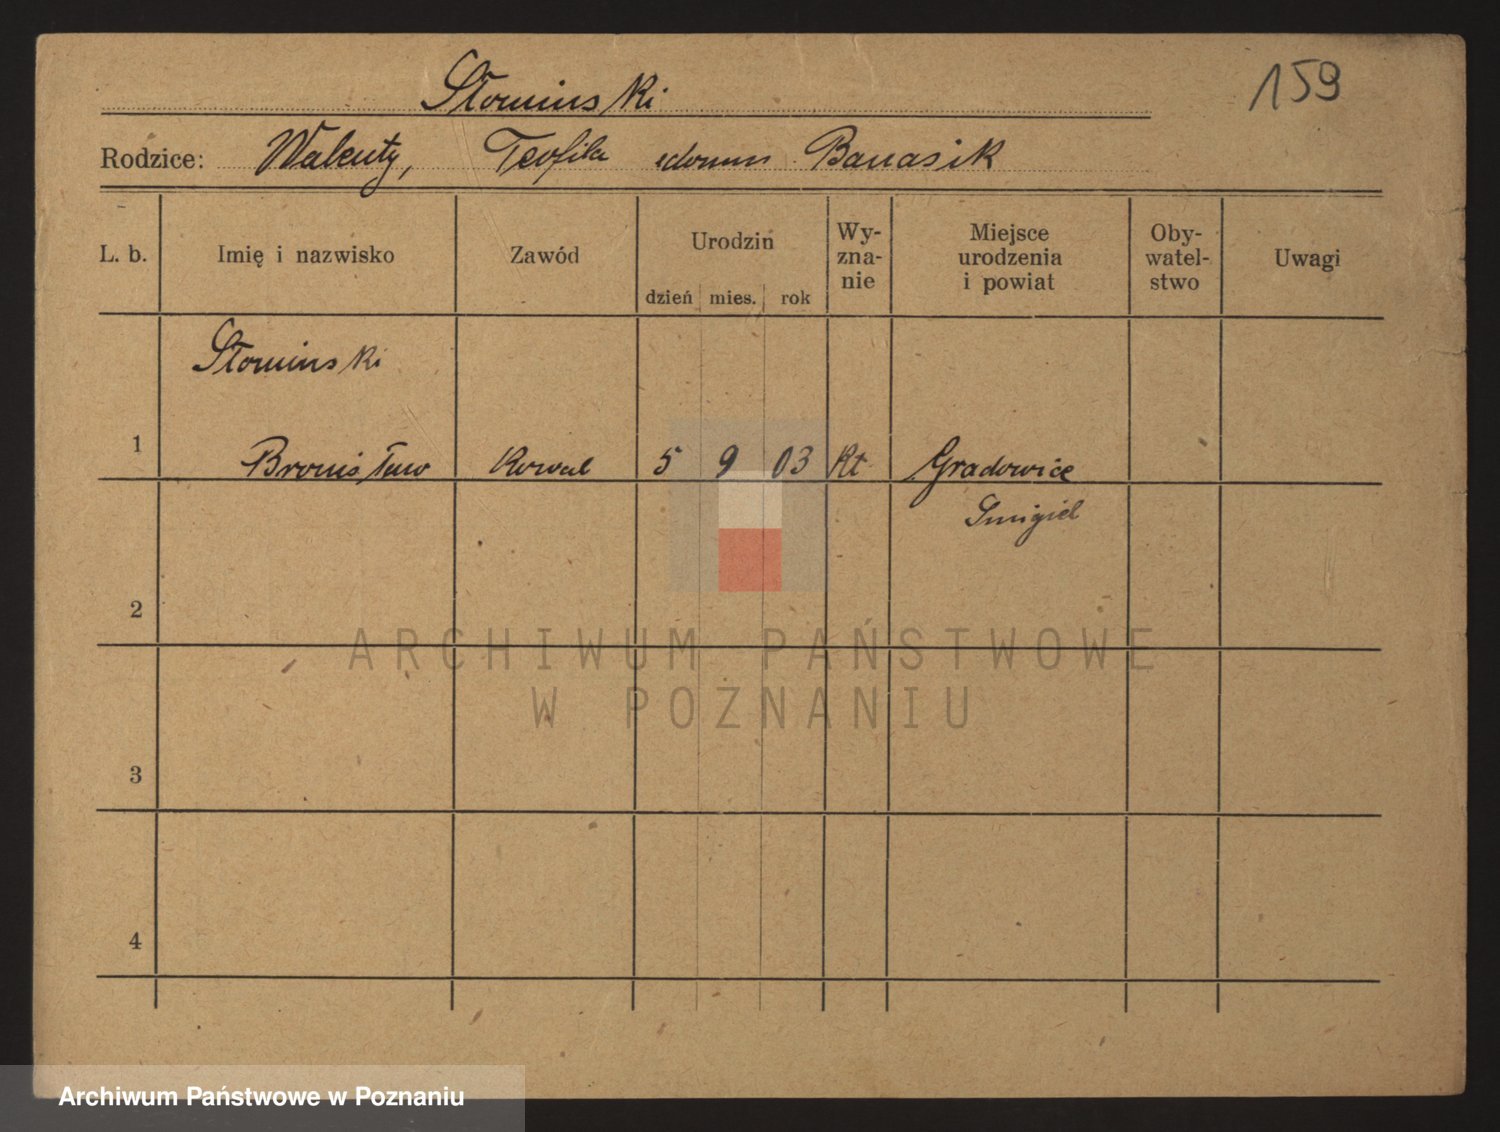 159
Słominski
Rodzice: Walenty, Teofila zdomu Banasik
L. b. Imię i nazwisko Zawód Urodzin dzień mies. rok Wy-zna-nie Miejsce urodzenia i powiat Oby-watel-stwo Uwagi
Słominski
1 Bronisław Kowal 5 9 03 Rt Gradowice
Smigiel
2
ARCHIWUM PAŃSTWOWE
W POZNANIU
3
4
Archiwum Państwowe w Poznaniu